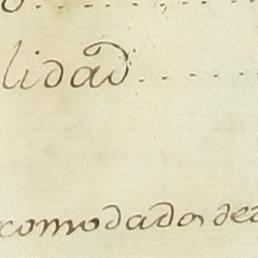 o.......
lidad.....
comodado de